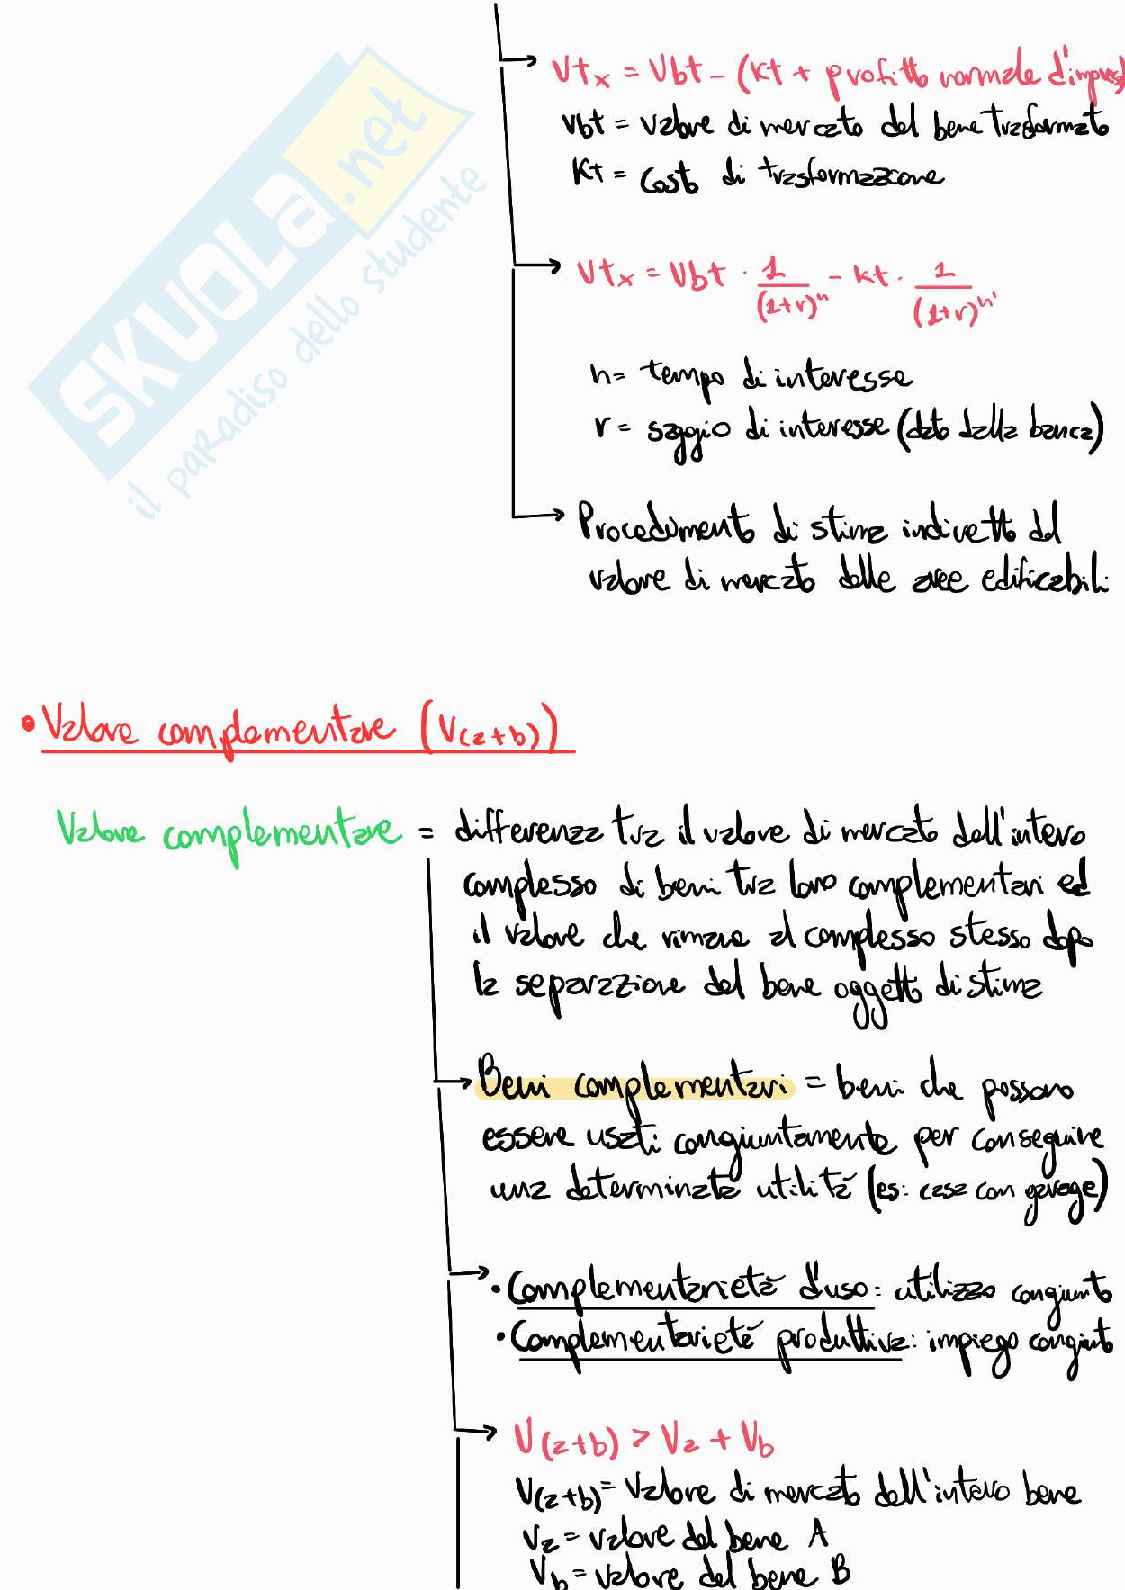 Vtx = Vbt - (Kt + profitto normale d'impresa
Vbt = valore di mercato del bene trasformato
Kt = costo di trasformazione
Vtx = Vbt · 1/(1+r)^n - Kt · 1/(1+r)^n'
n = tempo di interesse
r = saggio di interesse (dato dalla banca)
Procedimento di stima indiretto del
valore di mercato delle aree edificabili
• Valore complementare (V(a+b))
Valore complementare = differenza tra il valore di mercato dell'intero
complesso di beni tra loro complementari ed
il valore che rimane al complesso stesso dopo
la separazione del bene oggetto di stima
Beni complementari = beni che possono
essere usati congiuntamente per conseguire
una determinata utilità (es: casa con garage)
• Complementarietà d'uso: utilizzo congiunto
• Complementarietà produttiva: impiego congiunto
V(a+b) > Va + Vb
V(a+b) = Valore di mercato dell'intero bene
Va = valore del bene A
Vb = valore del bene B
SKUOLA.net
il paradiso dello studente